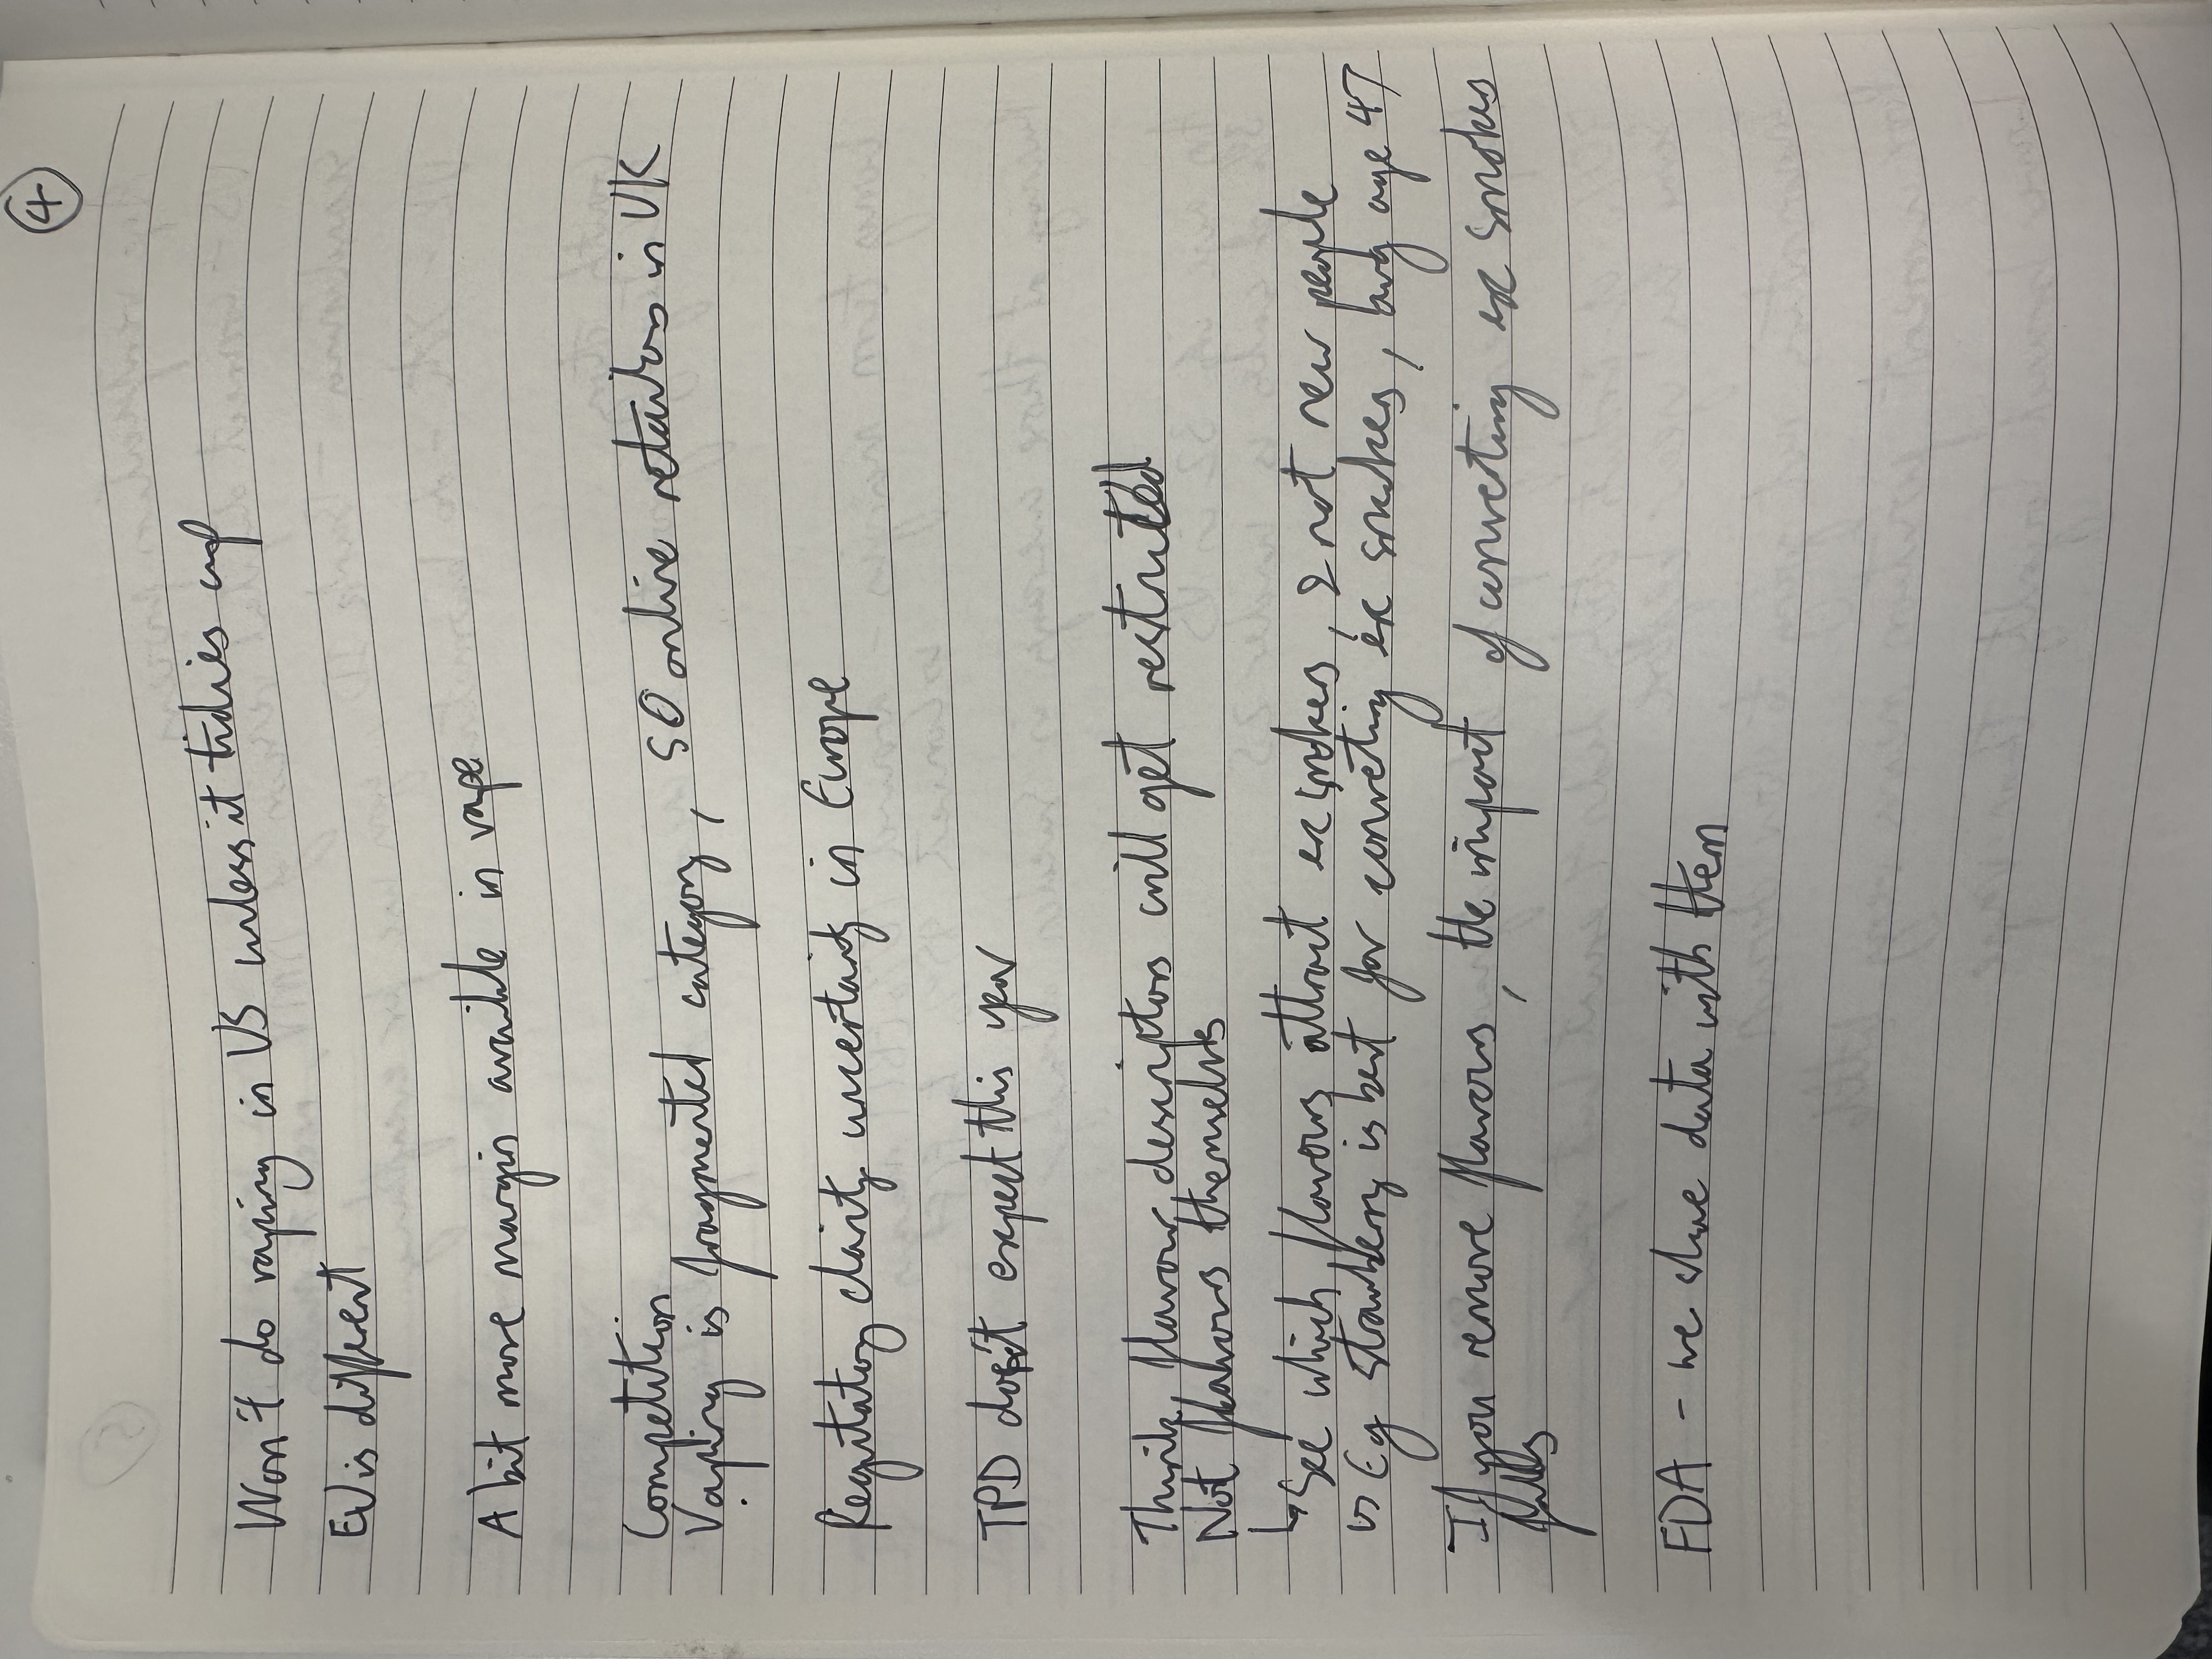 4
Won't do vaping in US unless it tidies up
EU is different
A bit more margin availble in vape
Competition
Vaping is fragmented category, 50 online retailers in UK
Regulatory clarity uncertainty in Europe
TPD doesn't expect this year
Think flavour descriptors will get restricted
Not flavours themselves
↳ See which flavours attract ex smokers, & not new people
↳ Eg strawberry is best for converting ex smokers, avg age 47
If you remove flavours, the impact of converting ex smokers
falls
FDA - we share data with them